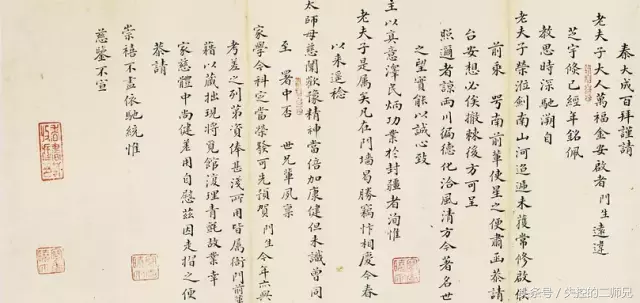 秦大成百拜謹請
老夫子大人萬福金安啟者門生遠違
芝宇倏已經年銘佩
教思時深馳溯自
老夫子榮涖劍南山河迢遞未獲常修啟候
前東粵南前輩使星之便肅函恭請
台安想必俟撤棘後方可呈
照邇者諒両川徧德化洽風清方今著名世
之望實能以誠心致
主以真意澤民炳功業於封疆者洵惟
老夫子是屬矣凡在門墻曷勝竊忭相慶今春
以来遥稔
太師母慈闈歡豫精神當倍加康健但未識曾同
至署中否世兄輩夙稟
家學今科定當榮發可先預賀門生今年六與
考差之列第資俸甚淺所用皆屬衙門前輩
藉以藏拙現將覓館復理青氈故業幸
家慈體中尚健差用自慰茲因走摺之便
恭請
崇禧不盡依馳統惟
慈鑒不宣
头条号/失控的二师兄